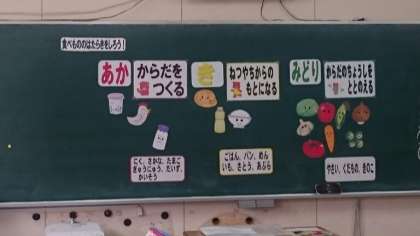 食べもののはたらきをしろう！
あか
からだを
つくる
き
ねつやちからの
もとになる
みどり
からだのちょうしを
ととのえる
にく、さかな、たまご
ぎゅうにゅう、だいず、
かいそう
ごはん、パン、めん
いも、さとう、あぶら
やさい、くだもの、きのこ